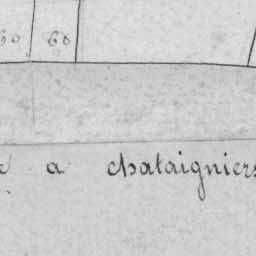 60
a chataigniers